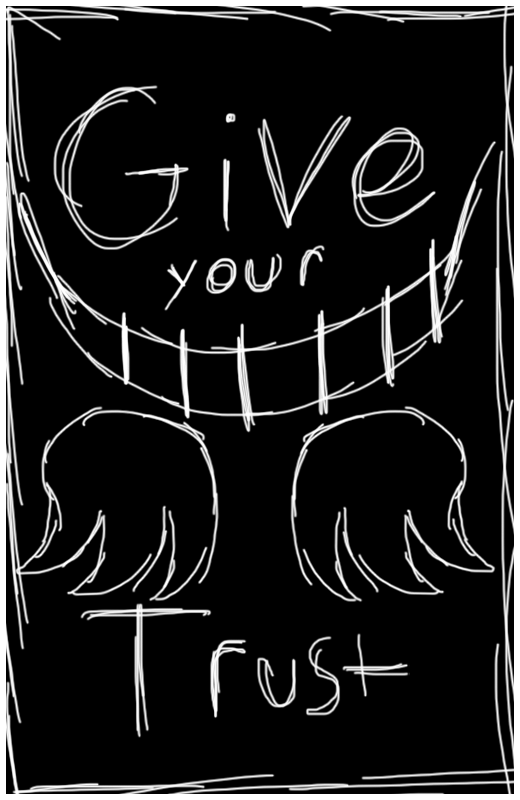 Give
your
Trust